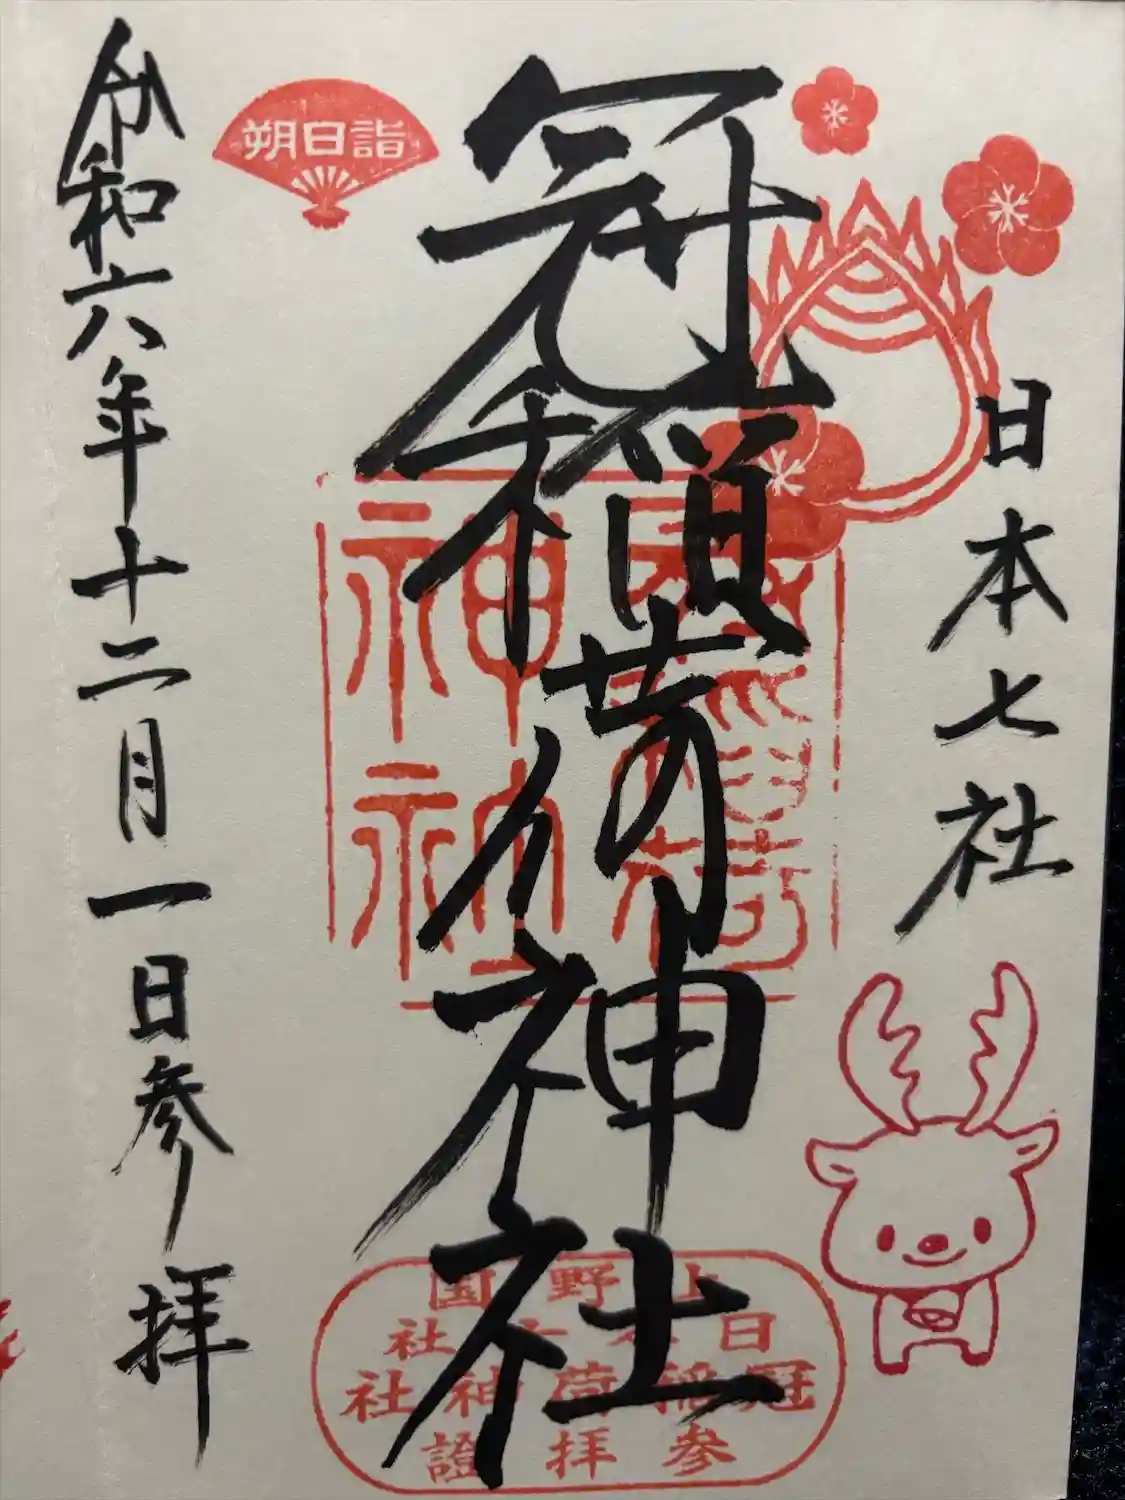 日本七社
冠稲荷神社
令和六年十二月一日参拝
朔日詣
冠稲荷
神社
上野国
日本七社
冠稲荷神社
参拝證